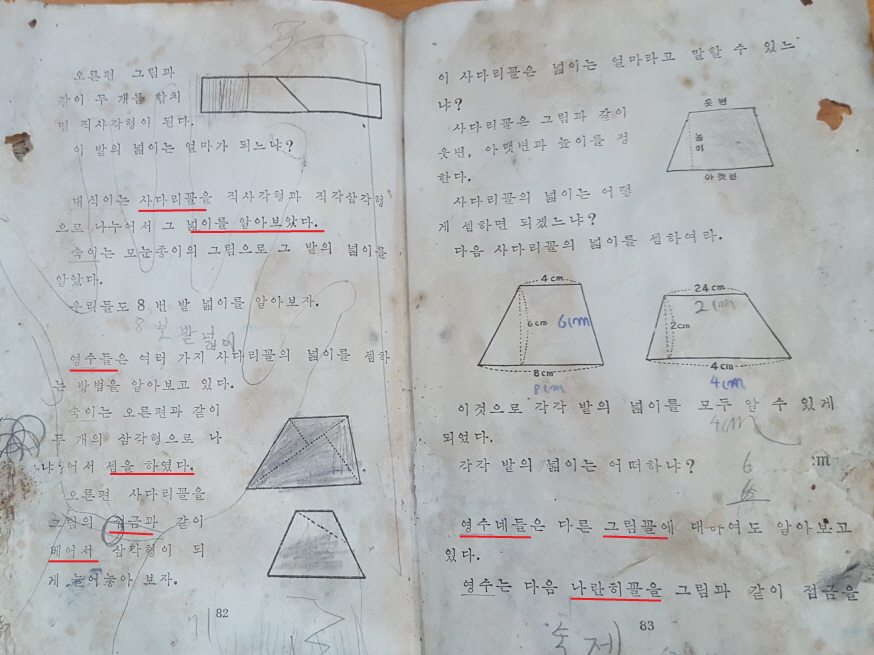 오른편 그림과
같이 두 개를 합치
면 직사각형이 된다.
이 밭의 넓이는 얼마가 되느냐?
대식이는 사다리꼴을 직사각형과 직각삼각형
으로 나누어서 그 넓이를 알아보았다.
숙이는 모눈종이의 그림으로 그 밭의 넓이를
알았다.
우리들도 8 번 밭 넓이를 알아보자.
8 번 밭 넓이
영수들은 여러 가지 사다리꼴의 넓이를 셈하
는 방법을 알아보고 있다.
숙이는 오른편과 같이
두 개의 삼각형으로 나
누어서 셈을 하였다.
오른편 사다리꼴을
그림의 점금과 같이
베어서 삼각형이 되
게 늘어놓아 보자.
82
이 사다리꼴은 넓이는 얼마라고 말할 수 있느
냐?
사다리꼴은 그림과 같이
웃변, 아랫변과 높이를 정
한다.
웃변
높이
아랫변
사다리꼴의 넓이는 어떻
게 셈하면 되겠느냐?
다음 사다리꼴의 넓이를 셈하여라.
4cm
6cm
6cm
8cm
8cm
24cm
2cm
2cm
4cm
4cm
이것으로 각각 밭의 넓이를 모두 알 수 있게
4cm
되었다.
각각 밭의 넓이는 어떠하냐?
6
m
영수네들은 다른 그림꼴에 대하여도 알아보고
있다.
영수는 다음 나란히꼴을 그림과 같이 점금을
83